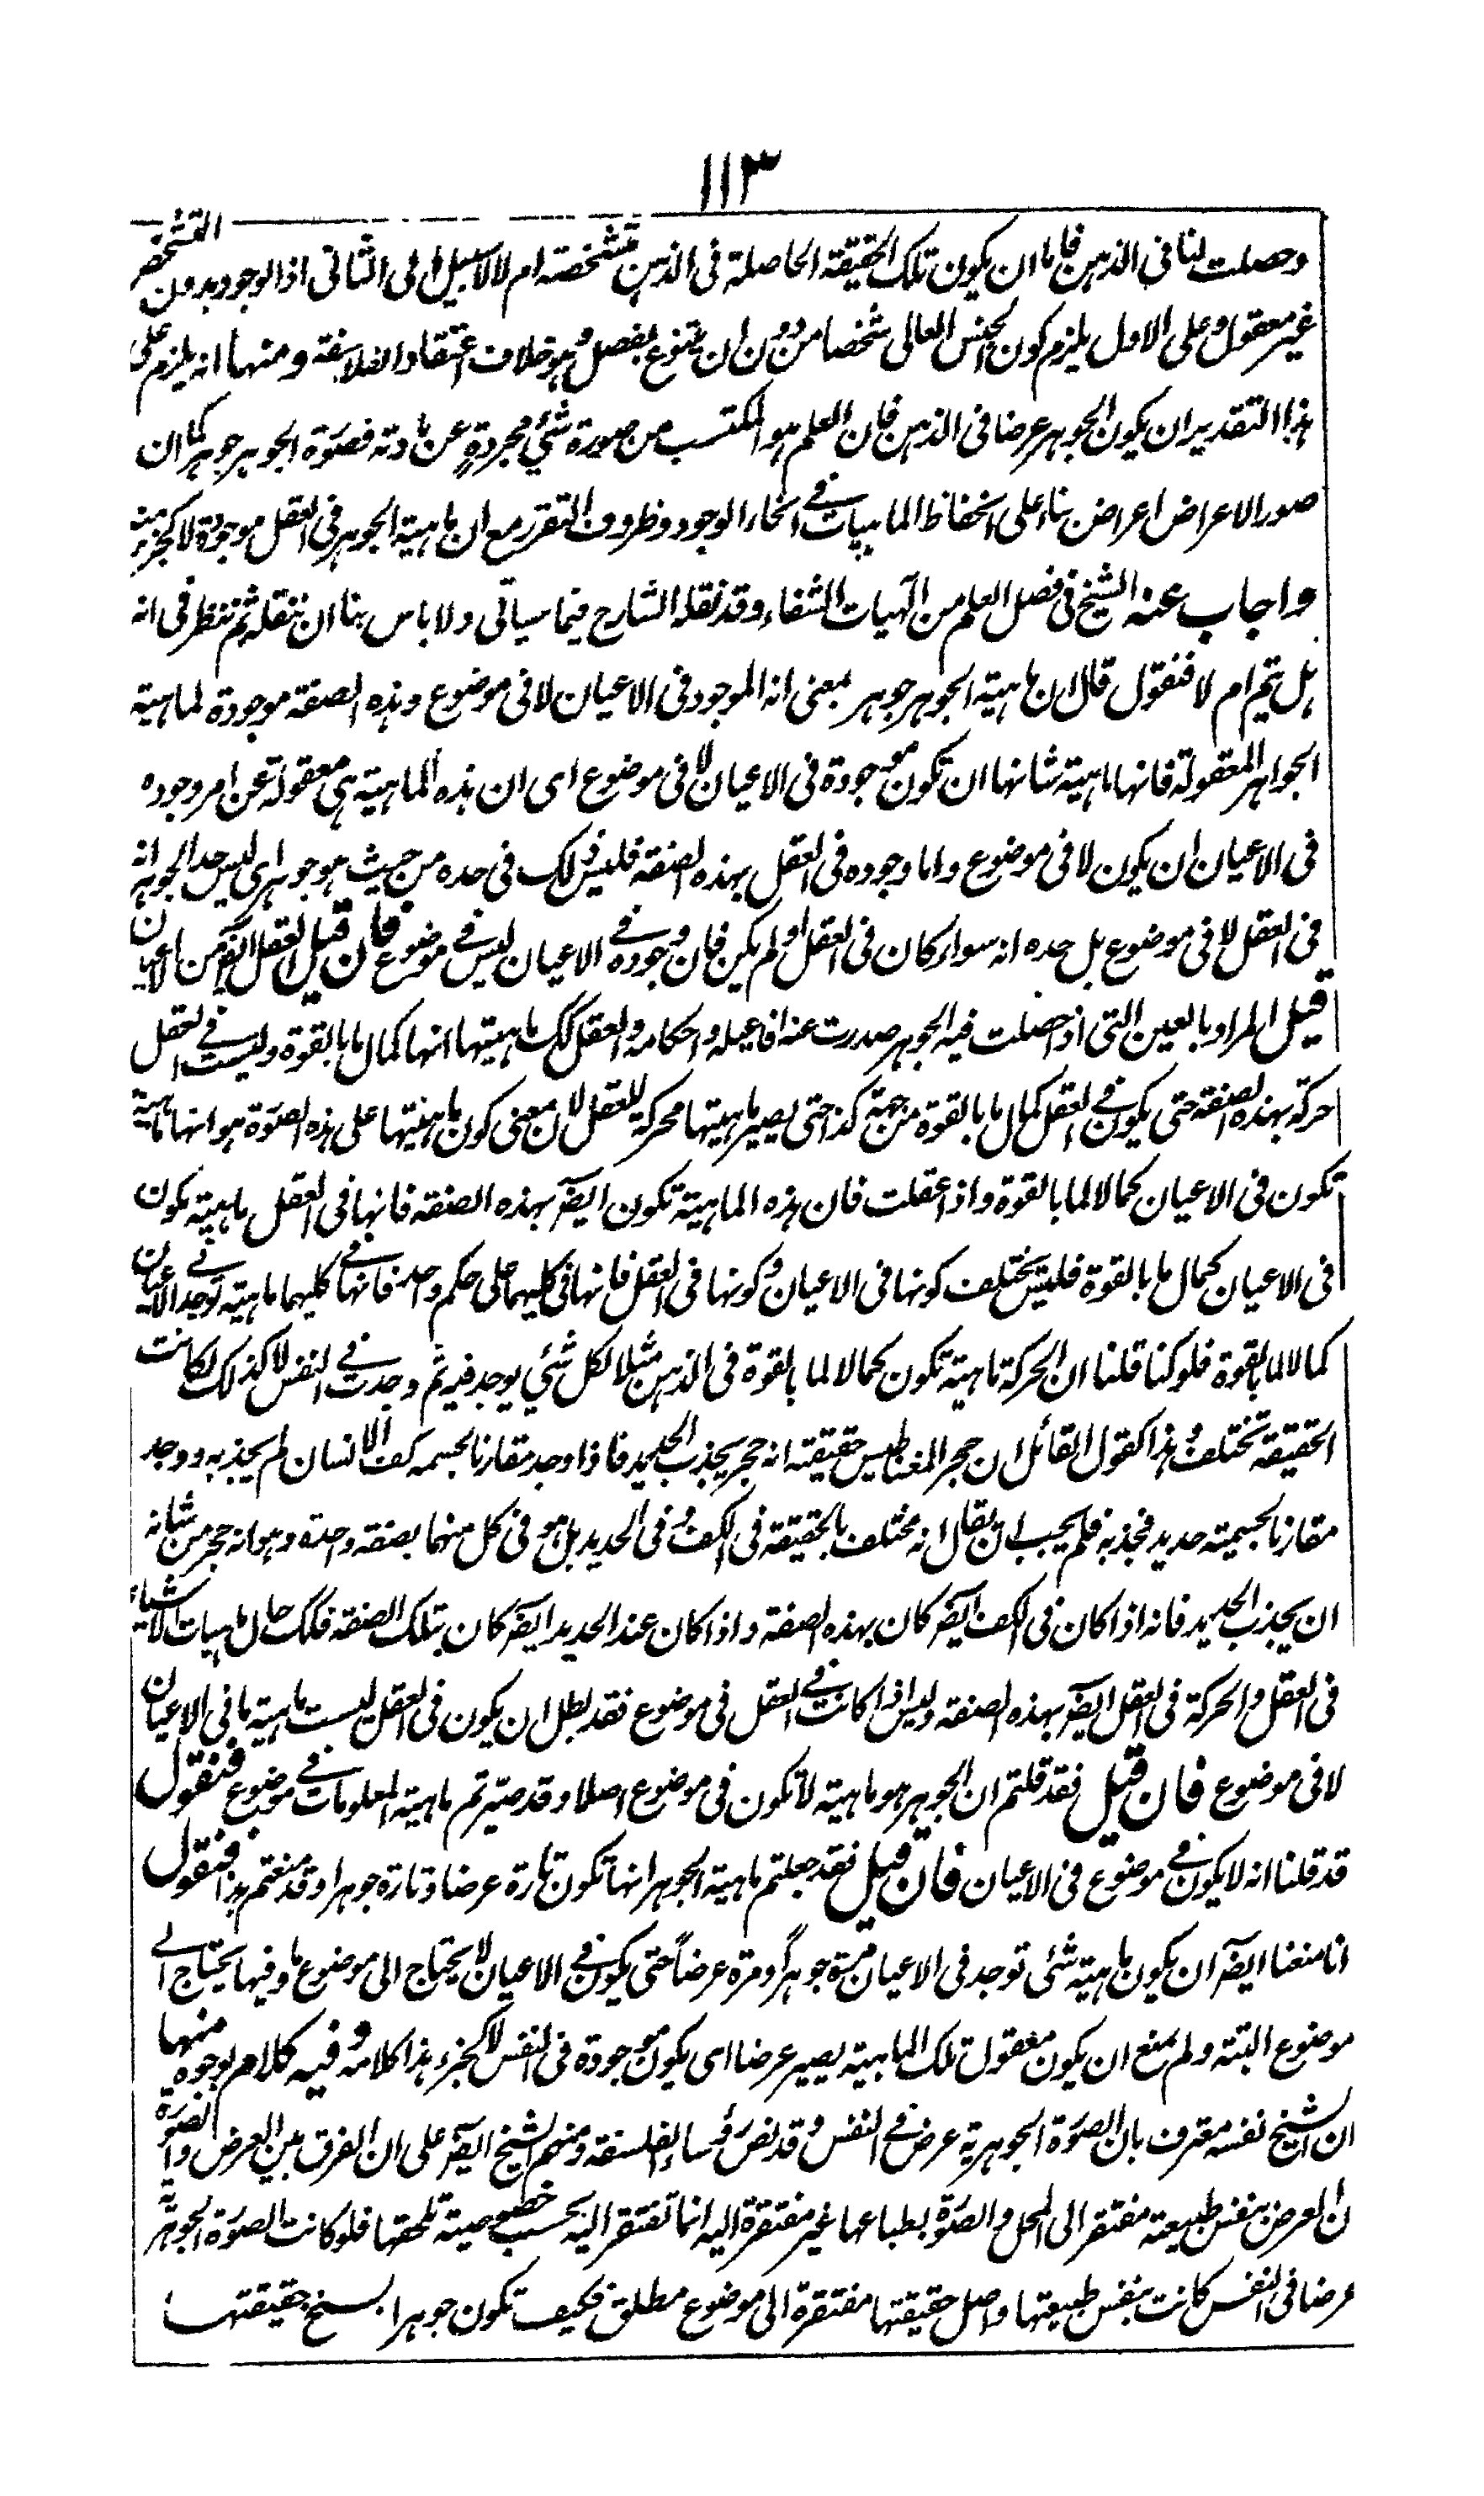 ١١٣
وحصلت لنا فى الذهن فاما ان يكون تلك الحقيقة الحاصلة فى الذهن متشخصة ام لا لا سبيل الى الثانى اذ الوجود بدون التشخص
غير معقول وعلى الاول يلزم كون الجنس العالى شخصا من دون ان يتنوع بفصل وهو خلاف اعتقاد الفلاسفة ومنها انه يلزم على
هذا التقدير ان يكون الجوهر عرضا فى الذهن فان العلم هو المكتسب من صورة شئ مجردةٍ عن مادته فصورة الجوهر جوهر كما ان
صور الاعراض اعراض بناء على انحفاظ الماهيات فى انحاء الوجود وظروف التقرر مع ان ماهية الجوهر فى العقل موجودة لا كجزء منه
واجاب عنه الشيخ فى فصل العلم من الٓهيات الشفاء وقد نقله الشارح فيما سياتى ولا باس بنا ان ننقله ثم ننظر فى انه
هل يتم ام لا فنقول قال ان ماهية الجوهر جوهر بمعنى انه الموجود فى الاعيان لا فى موضوع وهذه الصفة موجودة لماهية
الجواهر المعقولة فانها ماهية شانها ان تكون موجودة فى الاعيان لا فى موضوع اى ان هذه الماهية هى معقولة عن امر وجوده
فى الاعيان ان يكون لا فى موضوع واما وجوده فى العقل بهذه الصفة فليس ذلك فى حده من حيث هو جوهر اى ليس حد الجوهر انه
فى العقل لا فى موضوع بل حده انه سواء كان فى العقل او لم يكن فان وجوده فى الاعيان ليس فى موضوع فان قيل العقل ايضا من الاعيان
قيل المراد بالعين التى اذا حصلت فيه الجوهر صدرت عنه افاعيله واحكامه والعقل كك ماهيتها انها كمال ما بالقوة وليست فى العقل
حركة بهذه الصفة حتى يكون فى العقل كمال ما بالقوة من جهة كذا حتى يصير ماهيتها محركة للعقل لان معنى كون ماهيتها على هذه الصورة هو انها ماهية
تكون فى الاعيان كمالا لما بالقوة واذا عقلت فان هذه الماهية تكون ايضا بهذه الصفة فانها فى العقل ماهية تكون
فى الاعيان كمال ما بالقوة فليس يختلف كونها فى الاعيان وكونها فى العقل فانها فى كليهما على حكم واحد فانها فى كليهما ماهية توجد فى الاعيان
كمالا لما بالقوة فلو كنا قلنا ان الحركة ماهية تكون كمالا لما بالقوة فى الذهن مثلا لكل شئ يوجد فيه ثم وجدت فى النفس لا كذلك لكانت
الحقيقة تختلف وهذا كقول القائل ان حجر المغناطيس حقيقته انه حجر يجذب الحديد فاذا وجد مقارنا بجسمه كف الانسان لم يجذبه ووجد
مقارنا لجسمية حديد فجذبه فلم يجب ان يقال انه مختلف بالحقيقة فى الكف وفى الحديد بل هو فى كل منهما بصفة واحدة وهو انه حجر من شانه
ان يجذب الحديد فانه اذا كان فى الكف ايضا كان بهذه الصفة واذا كان عند الحديد ايضا كان بتلك الصفة فكك حال ماهيات الاشياء
فى العقل والحركة فى العقل ايضا بهذه الصفة وليس اذا كانت فى العقل فى موضوع فقد بطل ان يكون فى العقل ليست ماهية ما فى الاعيان
لا فى موضوع فان قيل فقد قلتم ان الجوهر هو ماهية لا تكون فى موضوع اصلا وقد صيرتم ماهية المعلومات فى موضوع فنقول
قد قلنا انه لا يكون فى موضوع فى الاعيان فان قيل فقد جعلتم ماهية الجوهر انها تكون تارة عرضا وتارة جوهرا وقد منعتم هذا فنقول
انا منعنا ايضا ان يكون ماهية شئ توجد فى الاعيان مرة جوهرا ومرة عرضاً حتى يكون فى الاعيان لا يحتاج الى موضوع ما وفيها يحتاج الى
موضوع البتة ولم نمنع ان يكون معقول تلك الماهية يصير عرضا اى يكون موجودة فى النفس لا كجزء هذا كلامه وفيه كلام بوجوه منها
ان الشيخ نفسه معترف بان الصورة الجوهرية عرض فى النفس وقد نص رؤساء الفلسفة ومنهم الشيخ ايضا على ان الفرق بين العرض والصورة
ان العرض بنفس طبيعته مفتقر الى المحل والصورة بطباعها غير مفتقرة اليه انما تفتقر اليه بحسب خصوصية تلحقها فلو كانت الصورة الجوهرية
عرضا فى النفس كانت بنفس طبيعتها واصل حقيقتها مفتقرة الى موضوع مطلق فكيف تكون جوهرا بسنخ حقيقتها